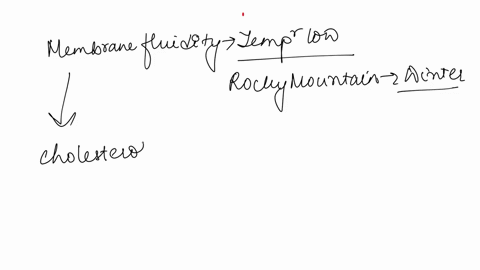 Membrane fluidity → Tempr low
Rocky Mountain → Winter
Cholestero